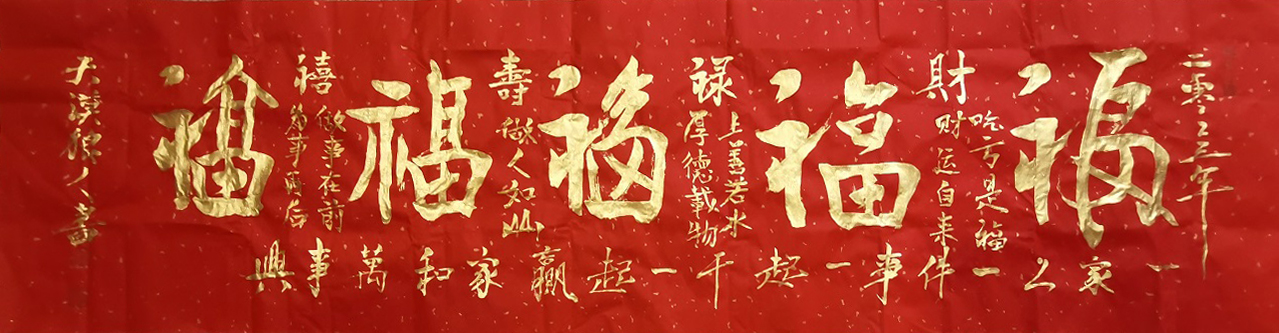 二零二五年
福
吃亏是福
財
财运自来
福
禄
上善若水
厚德載物
福
壽
做人如山
福
禧
做事在前
福
一家人一件事一起干一起贏家和萬事興